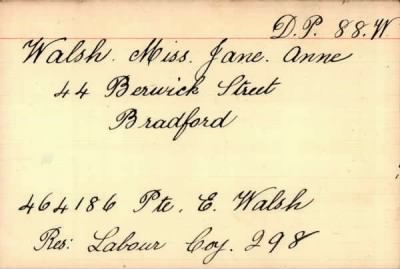 D.P. 88.W
Walsh. Miss. Jane. Anne
44 Berwick Street
Bradford
464186 Pte. E. Walsh
Res: Labour Coy. 298